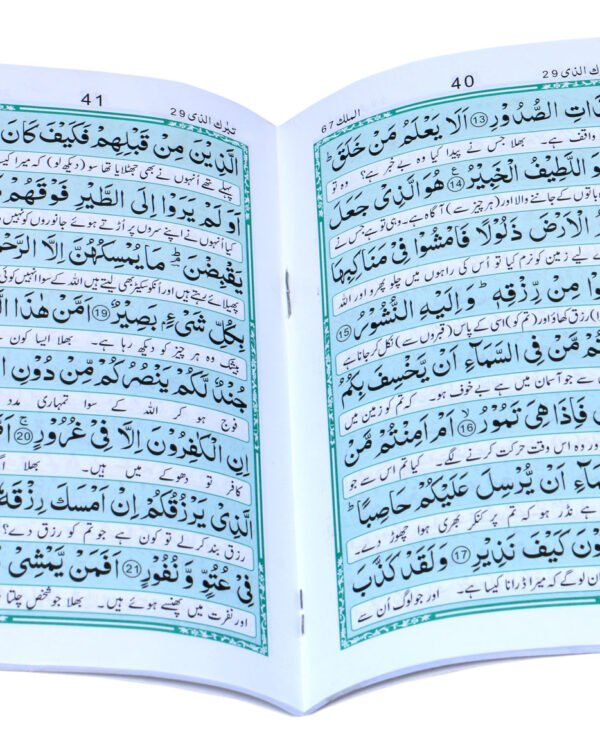 40
تبٰرك الذی 29
الملك 67
الصُّدُوْرِ ⑬ اَلَا يَعْلَمُ مَنْ خَلَقَ ؕ
واقف ہے۔ بھلا جس نے پیدا کیا وہ بے خبر ہے؟ وہ تو
اللَّطِيْفُ الْخَبِيْرُ ⑭ هُوَ الَّذِىْ جَعَلَ
باتوں کے جاننے والا اور (ہر چیز سے) آگاہ ہے۔ وہی تو ہے جس نے
الْاَرْضَ ذَلُوْلًا فَامْشُوْا فِىْ مَنَاكِبِهَا
لیے زمین کو نرم کیا تو اُس کی راہوں میں چلو پھرو اور اللہ
مِنْ رِّزْقِهٖ ؕ وَاِلَيْهِ النُّشُوْرُ ⑮
رزق کھاؤ اور (تم کو) اسی کے پاس (قبروں سے) نکل کر جانا ہے
مَّنْ فِى السَّمَآءِ اَنْ يَّخْسِفَ بِكُمُ
سے جو آسمان میں ہے بے خوف ہو۔ کہ تم کو زمین میں
فَاِذَا هِىَ تَمُوْرُ ⑯ اَمْ اَمِنْتُمْ مَّنْ
اور وہ اس وقت حرکت کرنے لگے۔ کیا تم اس سے جو
اَنْ يُّرْسِلَ عَلَيْكُمْ حَاصِبًا ؕ
ہے نڈر ہو کہ تم پر کنکر بھری ہوا چھوڑ دے۔
كَيْفَ نَذِيْرِ ⑰ وَلَقَدْ كَذَّبَ
لوگے کہ میرا ڈرانا کیسا ہے۔ اور جو لوگ اُن سے
41
تبٰرك الذی 29
الَّذِيْنَ مِنْ قَبْلِهِمْ فَكَيْفَ كَانَ
پہلے تھے اُنہوں نے بھی جھٹلایا تھا سو (دیکھ لو) کہ میرا کیسا
اَوَلَمْ يَرَوْا اِلَى الطَّيْرِ فَوْقَهُمْ
کیا اُنہوں نے اپنے سروں پر اُڑتے ہوئے جانوروں کو نہیں
يَقْبِضْنَ ؕ مَا يُمْسِكُهُنَّ اِلَّا
پھیلائے رہتے ہیں اور اُنکو سکیڑ بھی لیتے ہیں اللہ کے سوا انہیں کوئی
بِكُلِّ شَىْءٍۢ بَصِيْرٌ ⑲ اَمَّنْ هٰذَا
بیشک وہ ہر چیز کو دیکھ رہا ہے۔ بھلا ایسا کون
جُنْدٌ لَّكُمْ يَنْصُرُكُمْ مِّنْ دُوْنِ
فوج ہو کر اللہ کے سوا تمہاری مدد
اِنِ الْكٰفِرُوْنَ اِلَّا فِىْ غُرُوْرٍ ⑳
کافر تو دھوکے میں ہیں۔ بھلا
الَّذِىْ يَرْزُقُكُمْ اِنْ اَمْسَكَ
رزق بند کرلے تو کون ہے جو تم کو رزق دے؟
فِىْ عُتُوٍّ وَّ نُفُوْرٍ ㉑ اَفَمَنْ يَّمْشِىْ
اور نفرت میں پھنسے ہوئے ہیں۔ بھلا جو شخص چلتا